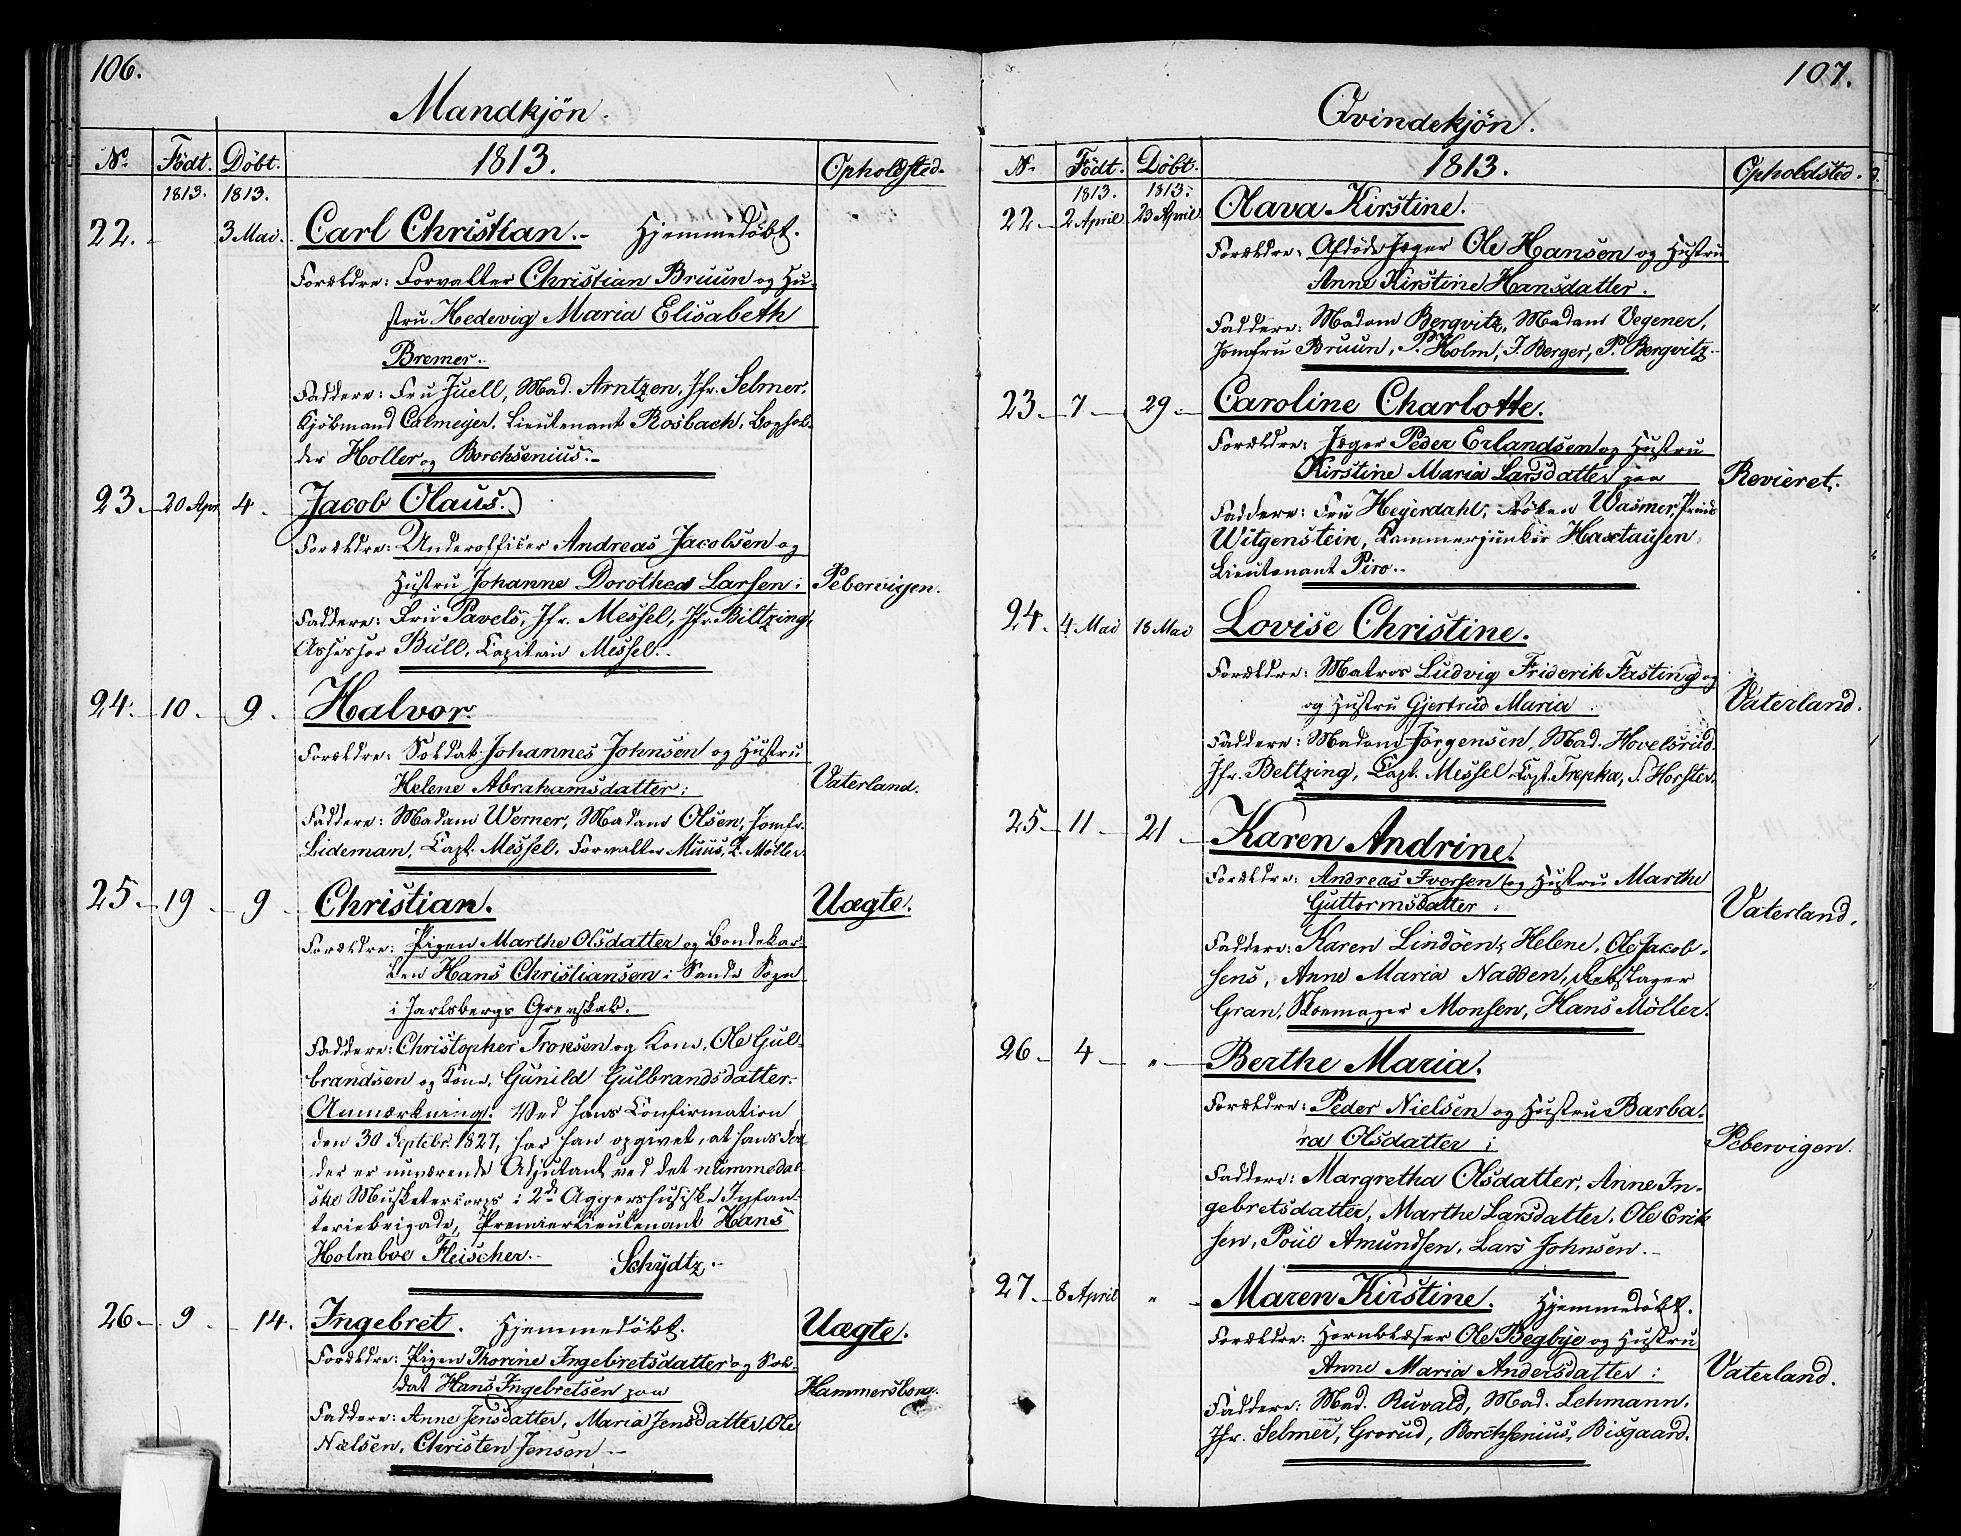 106.
Mandkjön.
No. Födt. Döbt. 1813. Opholdsted.
1813. 1813.
22. - 3 Mai. Carl Christian.- Hjemmedöbt.
Forældre: Forvalter Christian Bruun og Hu-
stru Hedevig Maria Elisabeth
Bremer.
Faddere: Fru Juell, Mad. Arntzen, Jfr. Selmer,
Kjöbmand Calmeyer, Lieutenant Rosbach, Boghol-
der Holler og Borchsenius.-
23.- 20 Apr. 4.- Jacob Olaus.
Forældre: Underofficer Andreas Jacobsen og
Hustru Johanne Dorothea Larsen i Pebervigen.
Faddere: Fru Pavels, Jfr. Messel, Jfr. Biltzing,
Assessor Bull, Capitain Messel.-
24.- 10.- 9.- Halvor.
Forældre: Soldat Johannes Johnsen og Hustru
Helene Abrahamsdatter; Vaterland.
Faddere: Madam Werner, Madam Olsen, Jomfr.
Lideman, Capt. Messel, Forvalter Muus, L. Möller.
25.- 19.- 9- Christian. Uægte.
Forældre: Pigen Marthe Olsdatter og Bondekar-
len Hans Christiansen i Sande Sogn
i Jarlsbergs Grevskab.
Faddere: Christopher Tronsen og Kone, Ole Gul-
brandsen og Kone, Gunild Gulbrandsdatter.
Anmærkning: Ved hans Confirmation
den 30 Septebr. 1827, har han opgivet, at hans Fa-
der er nuværende Adjutant ved det nummedal-
ske Musketercorps i 2den Aggershusiske Infan-
teriebrigade, Premierlieutenant Hans
Holmboe Fleischer.- Schydtz.-
26- 9- 14. Ingebret. Hjemmedöbt. Uægte.
Forældre: Pigen Thorine Ingebretsdatter og Sol-
dat Hans Ingebretsen paa Hammersborg.
Faddere: Anne Jensdatter, Maria Jensdatter, Ole
Nielsen, Christen Jensen.-
107.
Qvindekjön.
No. Födt. Döbt. 1813. Opholdsted.
1813. 1813.
22- 2 April 23 April Olava Kirstine.
Forældre: Afdöde Jæger Ole Hansen og Hustru
Anne Kirstine Hansdatter.
Faddere: Madam Bergvitz, Madam Vegener,
Jomfru Bruun, P. Holm, J. Berger, P. Bergvitz.-
23.- 7- 29- Caroline Charlotte.
Forældre: Jæger Peder Erlandsen og Hustru
Kirstine Maria Larsdatter paa Revieret.
Faddere: Fru Heyerdahl, Fröken Wasmer, Prinds
Witgenstein, Kammerjunker Haxtausen,
Lieutenant Piro.-
24.- 4 Mai 18 Mai Lovise Christine.
Forældre: Matros Ludvig Friderik Fasting og
og Hustru Gjertrud Maria : Vaterland.
Faddere: Madam Jörgensen, Mad. Hovelsrud,
Jfr. Beltzing, Capt. Messel, Capt. Trepka, S. Horster.
25- 11- 21- Karen Andrine.
Forældre: Andreas Iversen og Hustru Marthe
Guttormsdatter : Vaterland.
Faddere: Karen Lindöens, Helene, Ole Jacob-
sens, Anne Maria Nadden, Rebslager
Gran, Skomager Monsen, Hans Möller.
26- 4- "- Berthe Maria.
Forældre: Peder Nielsen og Hustru Barba-
ra Olsdatter i Pebervigen.
Faddere: Margretha Olsdatter, Anne In-
gebretsdatter, Marthe Larsdatter, Ole Erik-
sen, Poul Amundsen, Lars Johnsen.-
27.- 8 April " - Maren Kirstine. Hjemmedöbt.
Forældre: Hornblæser Ole Begbye og Hustru
Anne Maria Andersdatter : Vaterland.
Faddere: Mad. Ruvald, Mad. Lehmann,
Jfr. Selmer, Grorud, Borchsenius, Bisgaard.